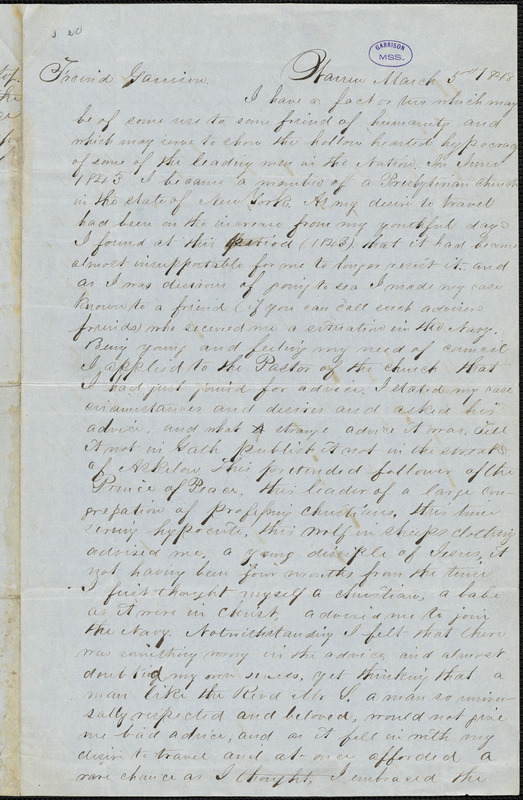 GARRISON
MSS.
Friend Garrison. Warren March 5th 1848
I have a fact or two which may
be of some use to some friend of humanity and
which may serve to show the hollow hearted hypocracy
of some of the leading men in the Nation. In June
1843 I became a member of a Presbyterian Church
in the state of New York. As my desire to travel
had been on the increase from my youthful days
I found at this period (1843) that it had become
almost insupportable for me to longer resist it and
as I was desirous of going to sea I made my case
known to a friend (if you can call such advisers
friends) who secured me a situation in the Navy.
Being young and feeling my need of council
I applied to the Pastor of the church that
I had just joined for advice. I stated my case
circumstances and desires and asked his
advice. and what strange advice it was, Tell
it not in Gath publish it not in the streets
of Askelon, This pretended follower of the
Prince of Peace, this leader of a large con-
gregation of professing christians, this time
serving hypocrite, this wolf in sheeps clothing
advised me, a young disciple of Jesus, it
not having been four months, from the time
I first thought myself a christian, a babe
as it were in Christ, advised me to join
the Navy. Notwithstanding I felt that there
was something wrong in the advice and almost
doubted my own senses, yet thinking that a
man like the Revd Mr S. a man so univer-
sally respected and beloved, would not give
me bad advice, and as it fell in with my
desire to travel and at once afforded a
rare chance as I thought, I embraced the